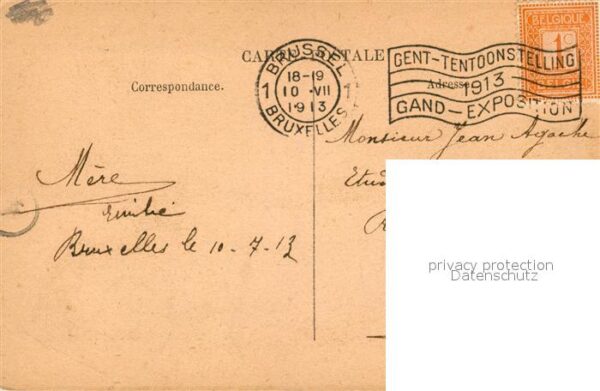 CARTE POSTALE
Correspondance.
Adresse
BRUSSEL
18-19
1 10 VII 1
1913
BRUXELLES
GENT-TENTOONSTELLING
1913
GAND-EXPOSITION
BELGIQUE
1c
BELGIË
Monsieur Jean Agache
Etud
Mère
Emilie
Bruxelles le 10-7-13
privacy protection
Datenschutz